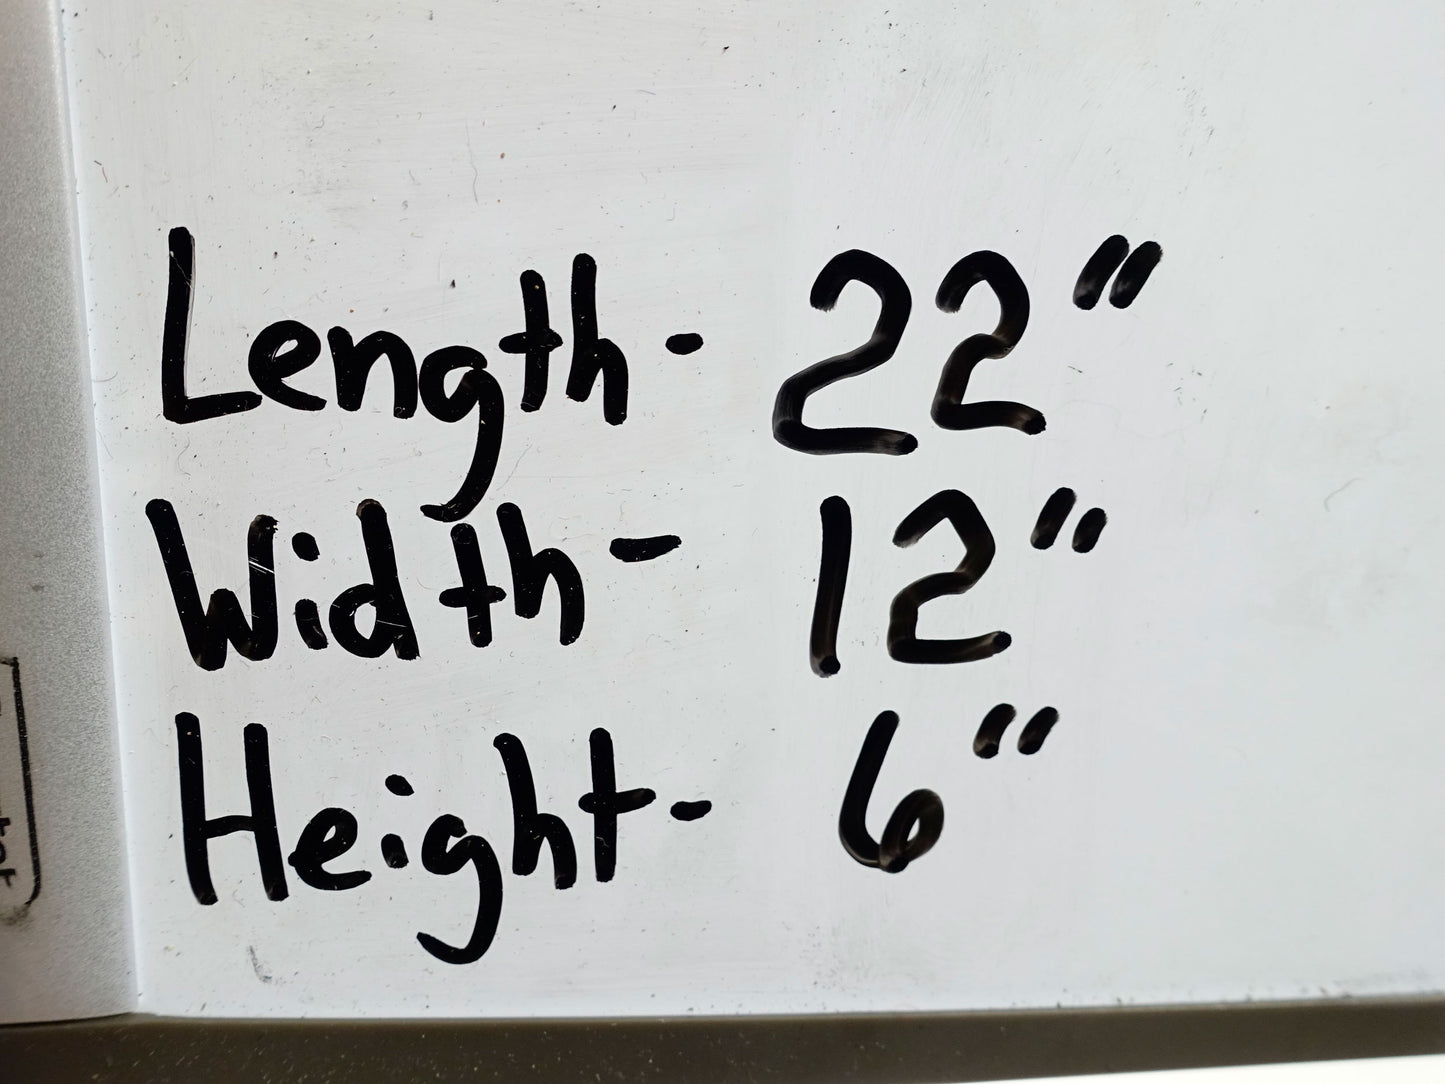 Length- 22"
Width- 12"
Height- 6"